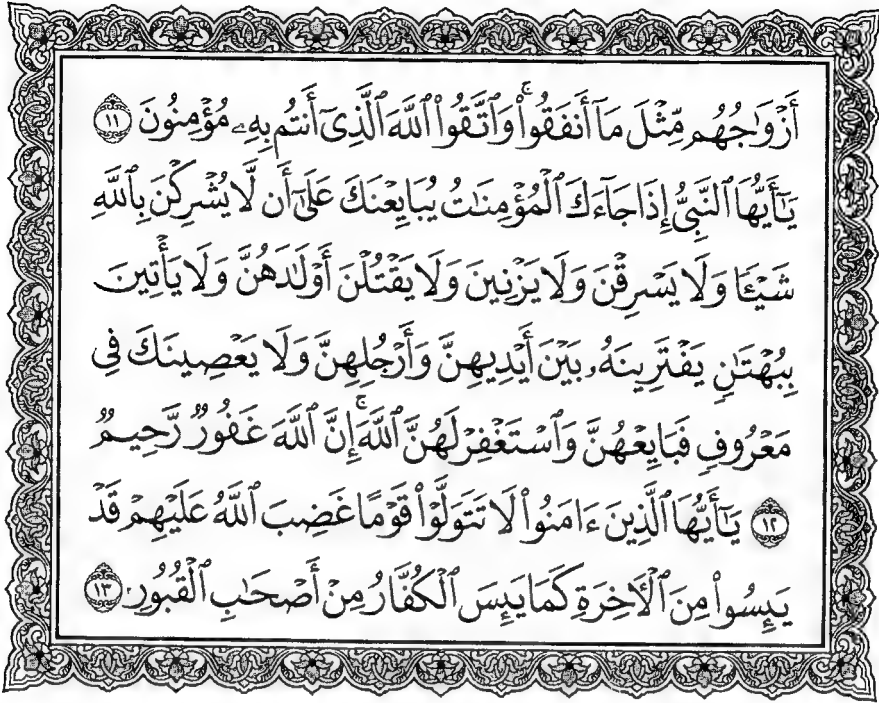 أَزْوَٰجُهُم مِّثْلَ مَآ أَنفَقُوا۟ ۚ وَٱتَّقُوا۟ ٱللَّهَ ٱلَّذِىٓ أَنتُم بِهِۦ مُؤْمِنُونَ ١١
يَـٰٓأَيُّهَا ٱلنَّبِىُّ إِذَا جَآءَكَ ٱلْمُؤْمِنَـٰتُ يُبَايِعْنَكَ عَلَىٰٓ أَن لَّا يُشْرِكْنَ بِٱللَّهِ
شَيْـًٔا وَلَا يَسْرِقْنَ وَلَا يَزْنِينَ وَلَا يَقْتُلْنَ أَوْلَـٰدَهُنَّ وَلَا يَأْتِينَ
بِبُهْتَـٰنٍ يَفْتَرِينَهُۥ بَيْنَ أَيْدِيهِنَّ وَأَرْجُلِهِنَّ وَلَا يَعْصِينَكَ فِى
مَعْرُوفٍ فَبَايِعْهُنَّ وَٱسْتَغْفِرْ لَهُنَّ ٱللَّهَ ۖ إِنَّ ٱللَّهَ غَفُورٌ رَّحِيمٌ
١٢ يَـٰٓأَيُّهَا ٱلَّذِينَ ءَامَنُوا۟ لَا تَتَوَلَّوْا۟ قَوْمًا غَضِبَ ٱللَّهُ عَلَيْهِمْ قَدْ
يَئِسُوا۟ مِنَ ٱلْـَٔاخِرَةِ كَمَا يَئِسَ ٱلْكُفَّارُ مِنْ أَصْحَـٰبِ ٱلْقُبُورِ ١٣